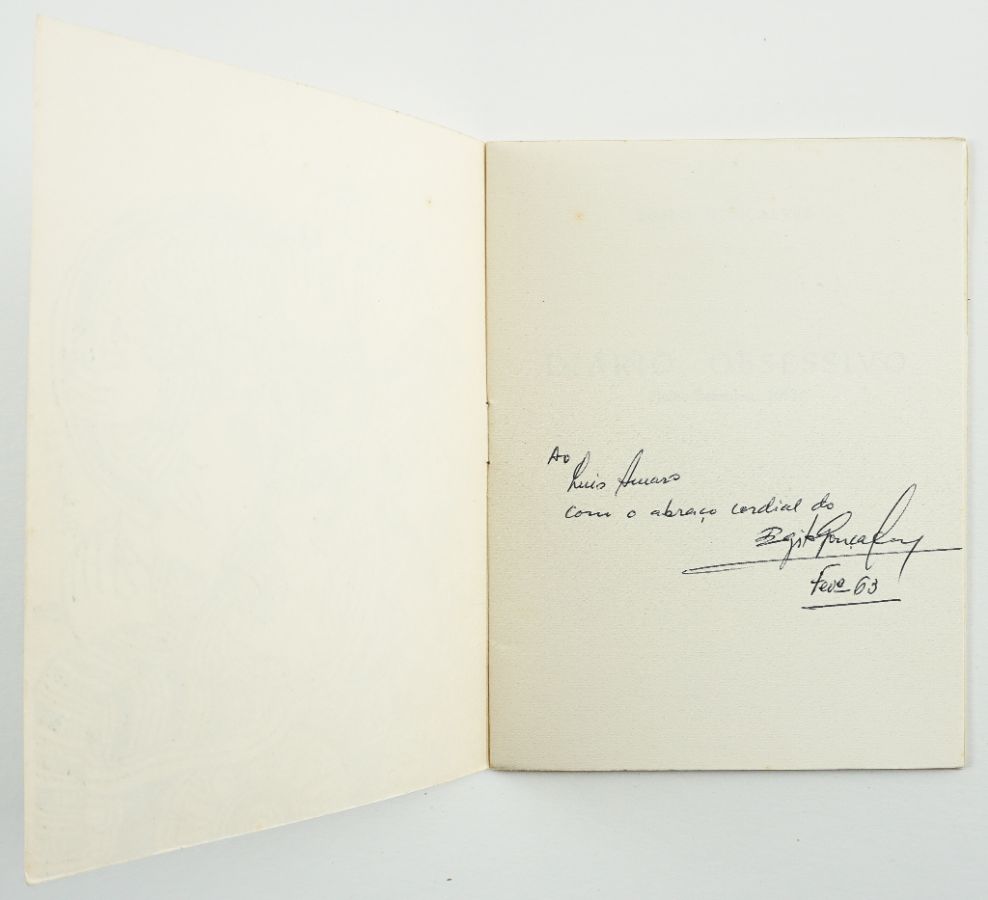 DIÁRIO OBSESSIVO
Ao
Luis Amaro
com o abraço cordial do
Egito Gonçalves
Fevº 63